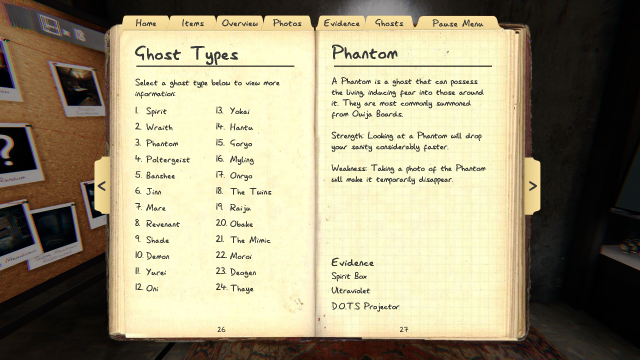 Home Items Overview Photos Evidence Ghosts Pause Menu
Ghost Types
Select a ghost type below to view more
information:
1. Spirit
2. Wraith
3. Phantom
4. Poltergeist
5. Banshee
6. Jinn
7. Mare
8. Revenant
9. Shade
10. Demon
11. Yurei
12. Oni
13. Yokai
14. Hantu
15. Goryo
16. Myling
17. Onryo
18. The Twins
19. Raiju
20. Obake
21. The Mimic
22. Moroi
23. Deogen
24. Thaye
26
Phantom
A Phantom is a ghost that can possess
the living, inducing fear into those around
it. They are most commonly summoned
from Ouija Boards.
Strength: Looking at a Phantom will drop
your sanity considerably faster.
Weakness: Taking a photo of the Phantom
will make it temporarily disappear.
Evidence
Spirit Box
Ultraviolet
D.O.T.S Projector
27
<
>
?